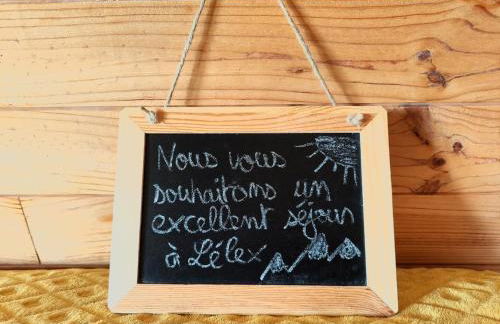 Nous vous
souhaitons un
excellent séjour
à Lélex